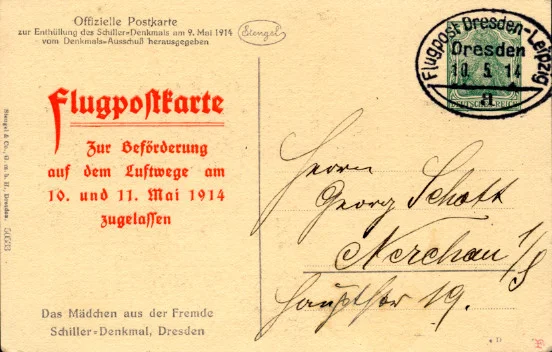 Offizielle Postkarte
zur Enthüllung des Schiller=Denkmals am 9. Mai 1914
vom Denkmals=Ausschuß herausgegeben
Stengel
Flugpost Dresden-Leipzig
Dresden
10 5. 14
a
DEUTSCHES REICH
Flugpostkarte
Zur Beförderung
auf dem Luftwege am
10. und 11. Mai 1914
zugelassen
Stengel & Co., G. m. b. H., Dresden.
Herrn
Georg Schott
Nerchau i/S
Das Mädchen aus der Fremde
Schiller=Denkmal, Dresden
19.